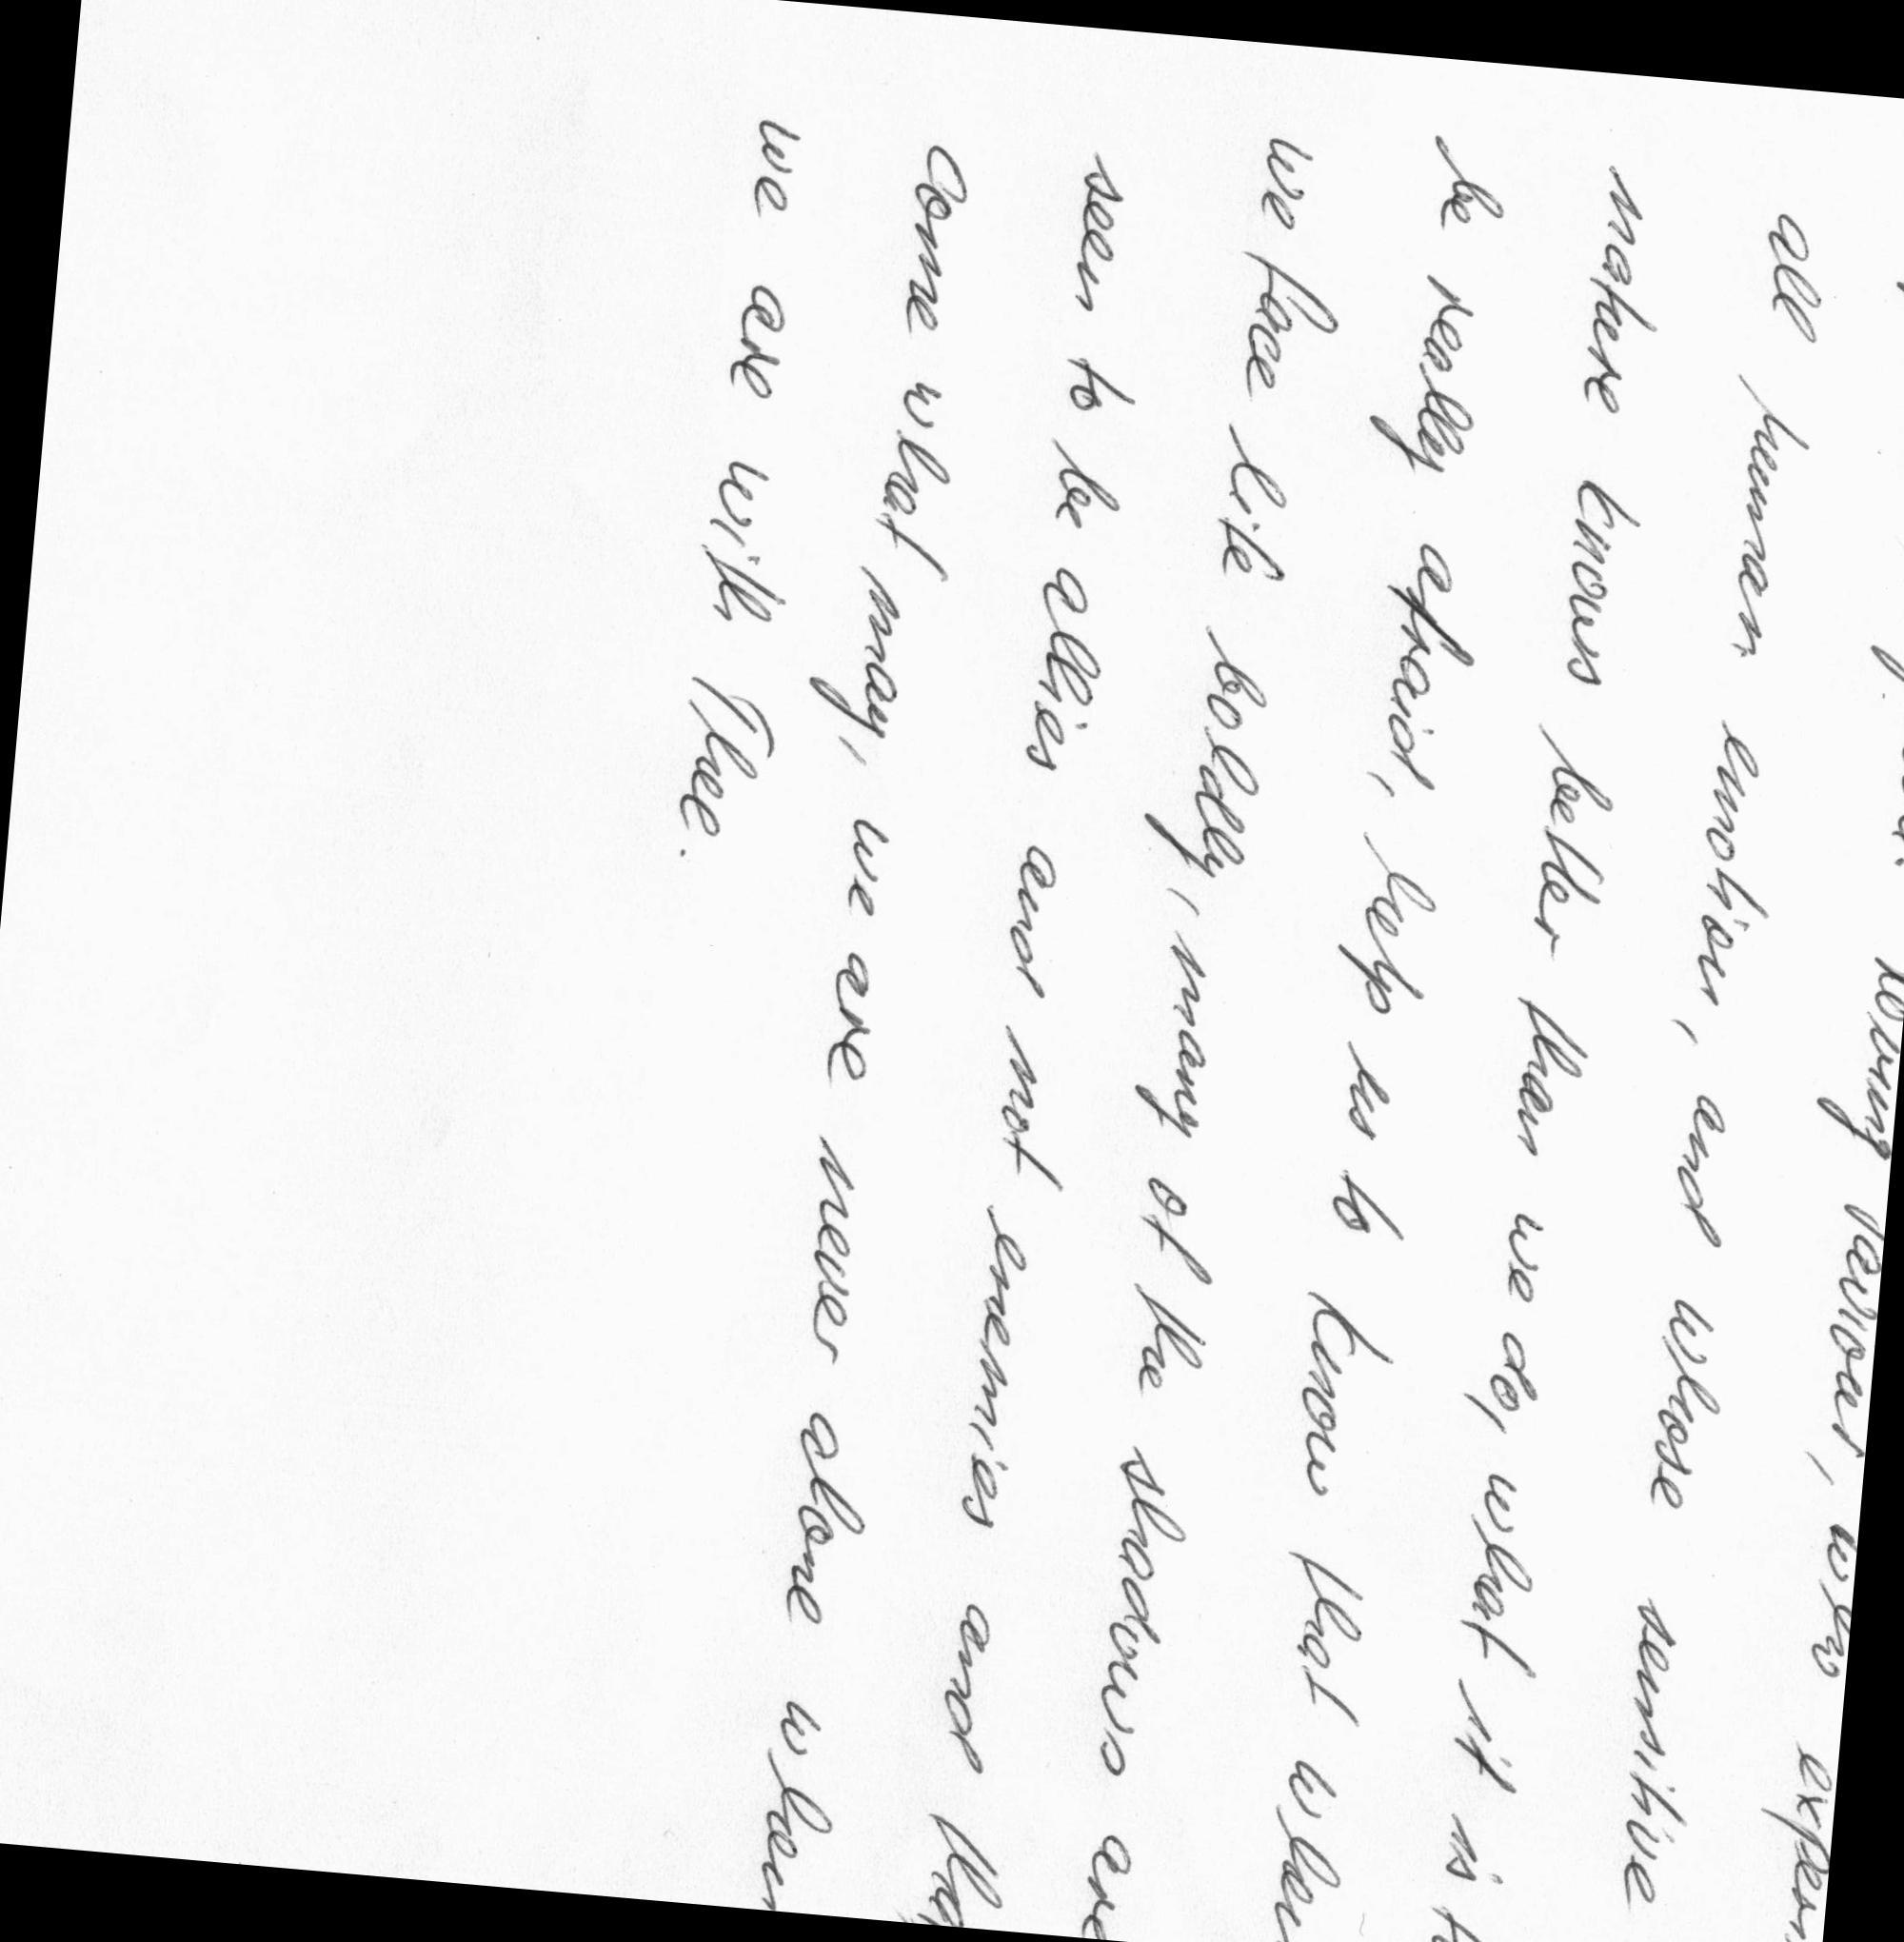 loving Saviour, who
all human emotion, and whose sensitive
nature knows better than we do, what it is
be really afraid, help us to know that when
we face life boldly, many of the shadows are
seen to be allies and not enemies and
Come what may, we are never alone when
we are with Thee.